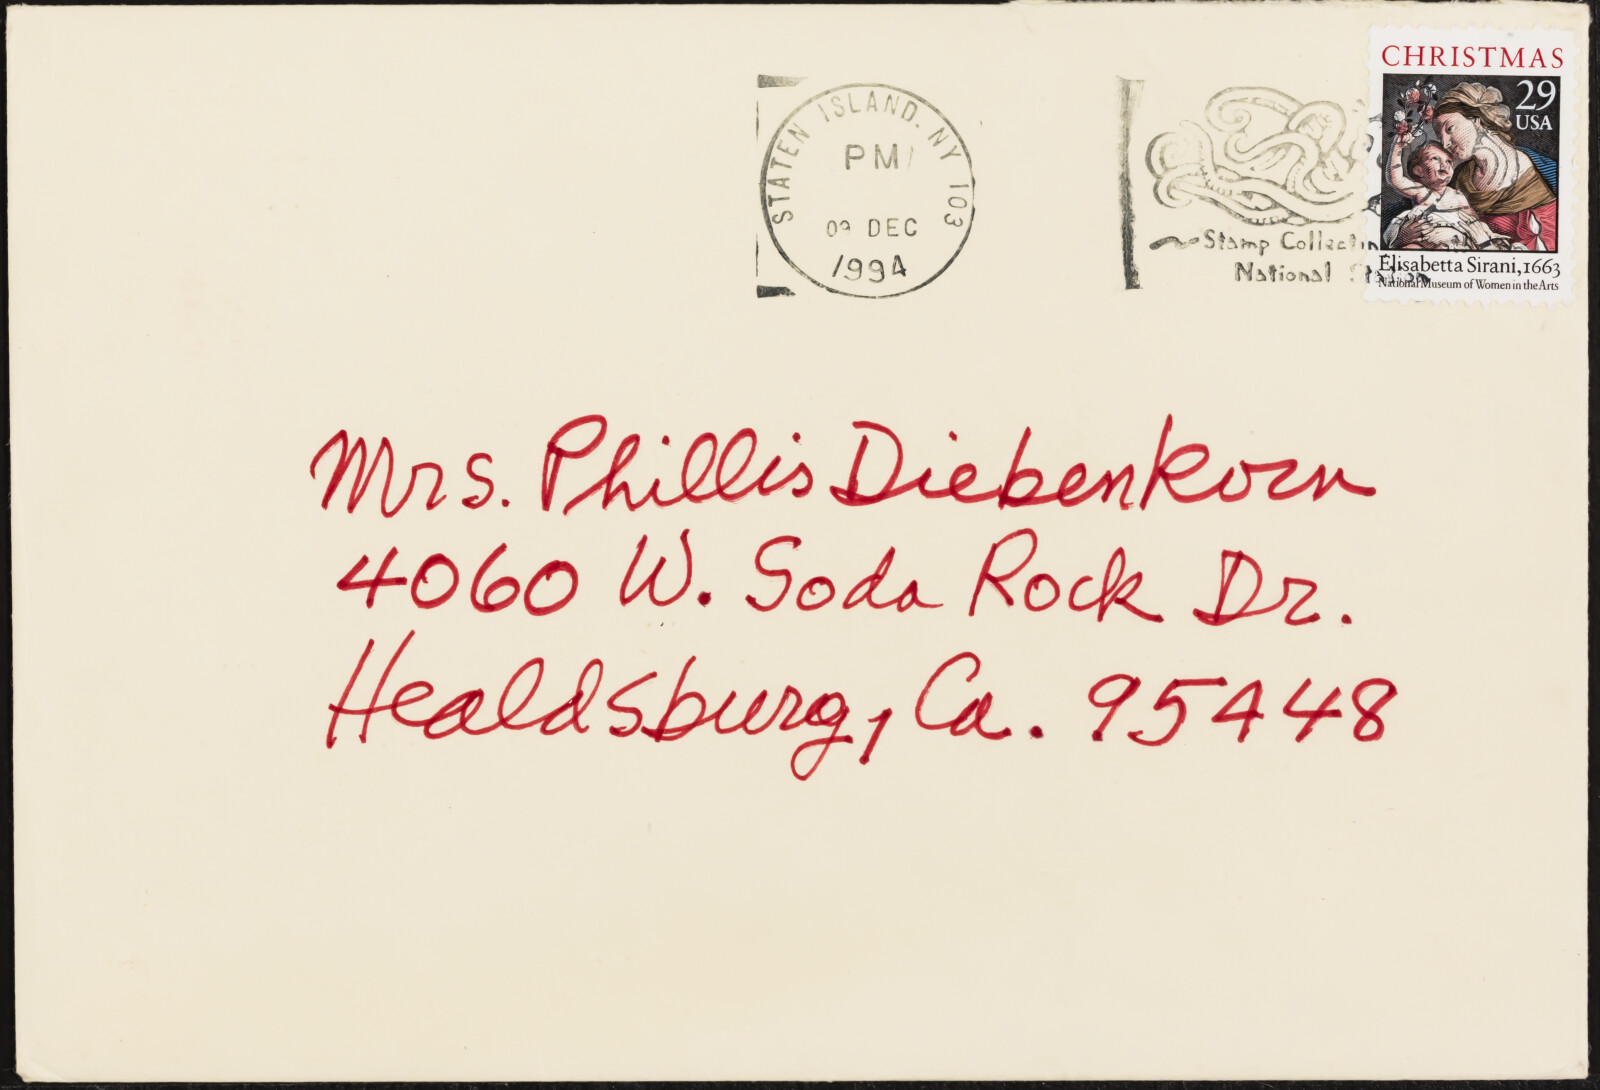 STATEN ISLAND. NY 103
PM
DEC
1994
Stamp
National
CHRISTMAS
29
USA
Elisabetta Sirani, 1663
National Museum of Women in the Arts
Mrs. Phillis Diebenkorn
4060 W. Soda Rock Dr.
Healdsburg, Ca. 95448